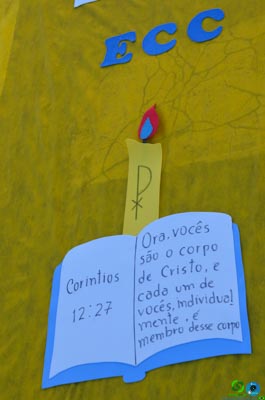 ECC
Coríntios
12:27
Ora, vocês
são o corpo
de Cristo, e
cada um de
vocês, individual
mente, é
membro desse corpo